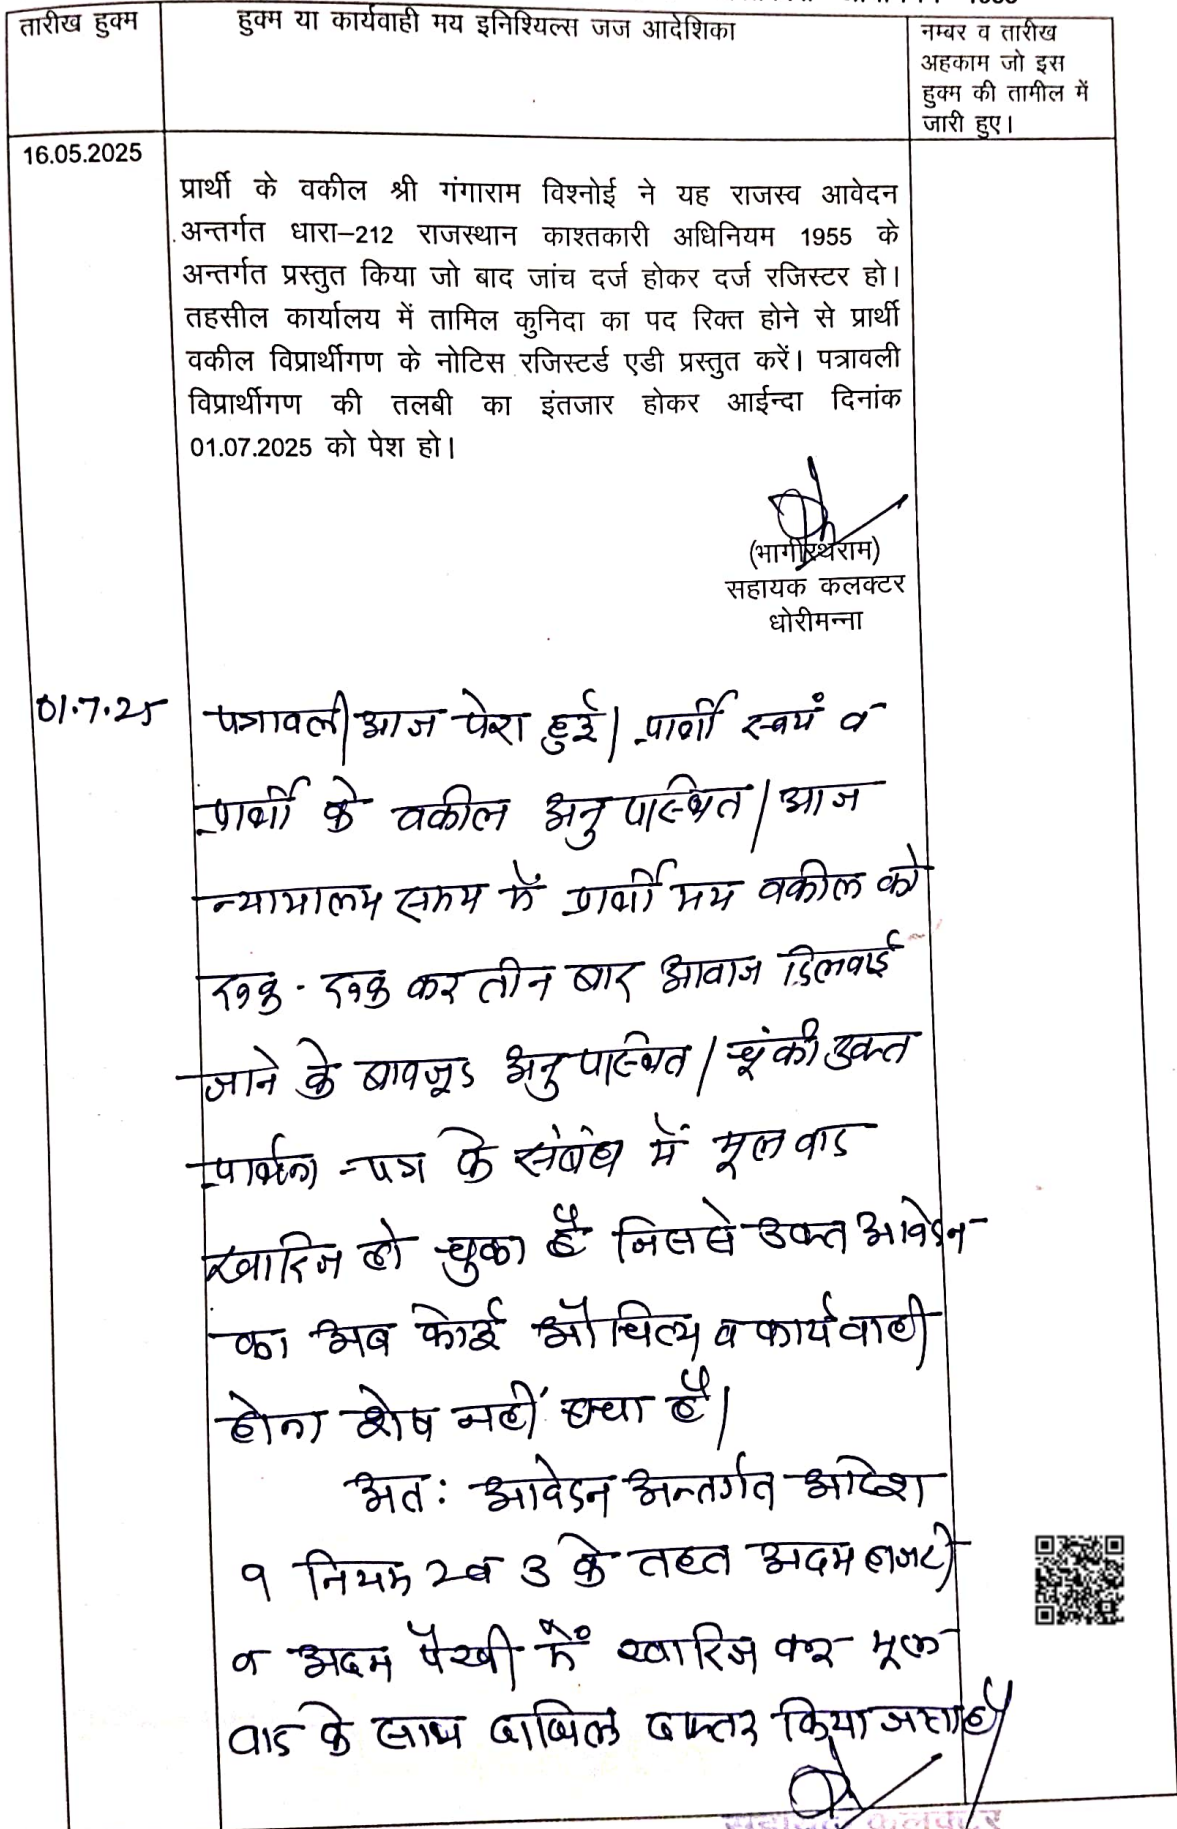 तारीख हुक्म
हुक्म या कार्यवाही मय इनिश्यिल्स जज आदेशिका
नम्बर व तारीख
अहकाम जो इस
हुक्म की तामील में
जारी हुए।
16.05.2025
प्रार्थी के वकील श्री गंगाराम विश्नोई ने यह राजस्व आवेदन
अन्तर्गत धारा–212 राजस्थान काश्तकारी अधिनियम 1955 के
अन्तर्गत प्रस्तुत किया जो बाद जांच दर्ज होकर दर्ज रजिस्टर हो।
तहसील कार्यालय में तामिल कुनिदा का पद रिक्त होने से प्रार्थी
वकील विप्रार्थीगण के नोटिस रजिस्टर्ड एडी प्रस्तुत करें। पत्रावली
विप्रार्थीगण की तलबी का इंतजार होकर आईन्दा दिनांक
01.07.2025 को पेश हो।
(भागीरथराम)
सहायक कलक्टर
धोरीमन्ना
01.7.25
पत्रावली आज पेश हुई। प्रार्थी स्वयं व
प्रार्थी के वकील अनुपस्थित। आज
न्यायालय समय में प्रार्थी मय वकील को
रूक-रूक कर तीन बार आवाज दिलवाई
जाने के बावजूद अनुपस्थित। चूंकी उक्त
प्रार्थना-पत्र के संबंध में मूल वाद
खारिज हो चुका है जिससे उक्त आवेदन
का अब कोई औचित्य व कार्यवाही
होना शेष नहीं बचा है।
अतः आवेदन अन्तर्गत आदेश
9 नियम 2 व 3 के तहत अदम हाजरी
व अदम पैरवी में खारिज कर मूल
वाद के साथ दाखिल दफ्तर किया जाता है
सहायक कलक्टर